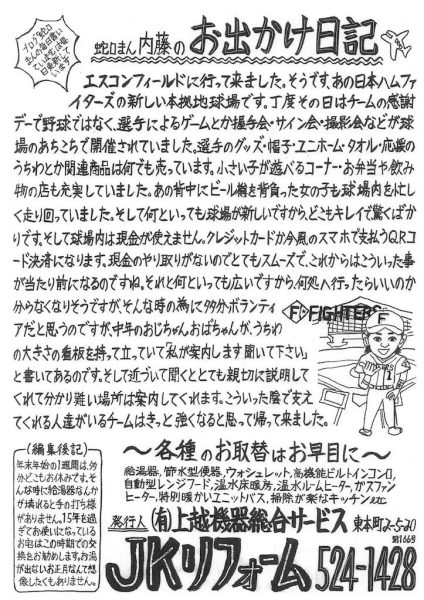 ブログ「蛇口
まんの毎日」書い
ています。よければ
ご覧下さ
います
蛇口まん 内藤の お出かけ日記
エスコンフィールドに行って来ました。そうです、あの日本ハムファ
イターズの新しい本拠地球場です。丁度その日はチームの感謝
デーで野球ではなく、選手によるゲームとか握手会・サイン会・撮影会などが球
場のあちこちで開催されていました。選手のグッズ・帽子・ユニホーム・タオル・応援の
うちわとか関連商品は何でも売っています。小さい子が遊べるコーナー・お弁当や飲み
物の店も充実していました。あの背中にビール樽を背負った女の子も球場内を忙し
く走り回っていました。そして何といっても球場が新しいですから、どこもキレイで驚くばか
りです。そして球場内は現金が使えません。クレジットカードか今風のスマホで支払うQRコ
ード決済になります。現金のやり取りがないのでとてもスムーズで、これからはこういった事
が当たり前になるのですね。それと何といっても広いですから、何処へ行ったらいいのか
分からなくなりそうですが、そんな時の為に多分ボランティ
アだと思うのですが、中年のおじちゃん、おばちゃんが、うちわ
の大きさの看板を持って立っていて「私が案内します聞いて下さい」
と書いてあるのです。そして近づいて聞くととても親切に説明して
くれて分かり難い場所は案内してくれます。こういった陰で支え
てくれる人達がいるチームはきっと強くなると思って帰って来ました。
F FIGHTERS
F
1
(編集後記)
年末年始の1週間は、多
分どこもお休みです。そ
んな時に給湯器なんか
が壊れると手の打ち様
がありません。15年を過
ぎてお使いになっている
お宅はこの時期での交
換をお勧めします。お湯
が出ないお正月なんて想
像したくもありません。
～各種のお取替はお早目に～
給湯器, 節水型便器, ウォシュレット, 高機能ビルトインコンロ,
自動型レンジフード, 温水床暖房, 温水ルームヒーター, ガスファン
ヒーター, 特別暖かいユニットバス, 掃除が楽なキッチン etc
発行人 (有)上越機器総合サービス 東本町2-5-20
第166号
JKリフォーム 524-1428